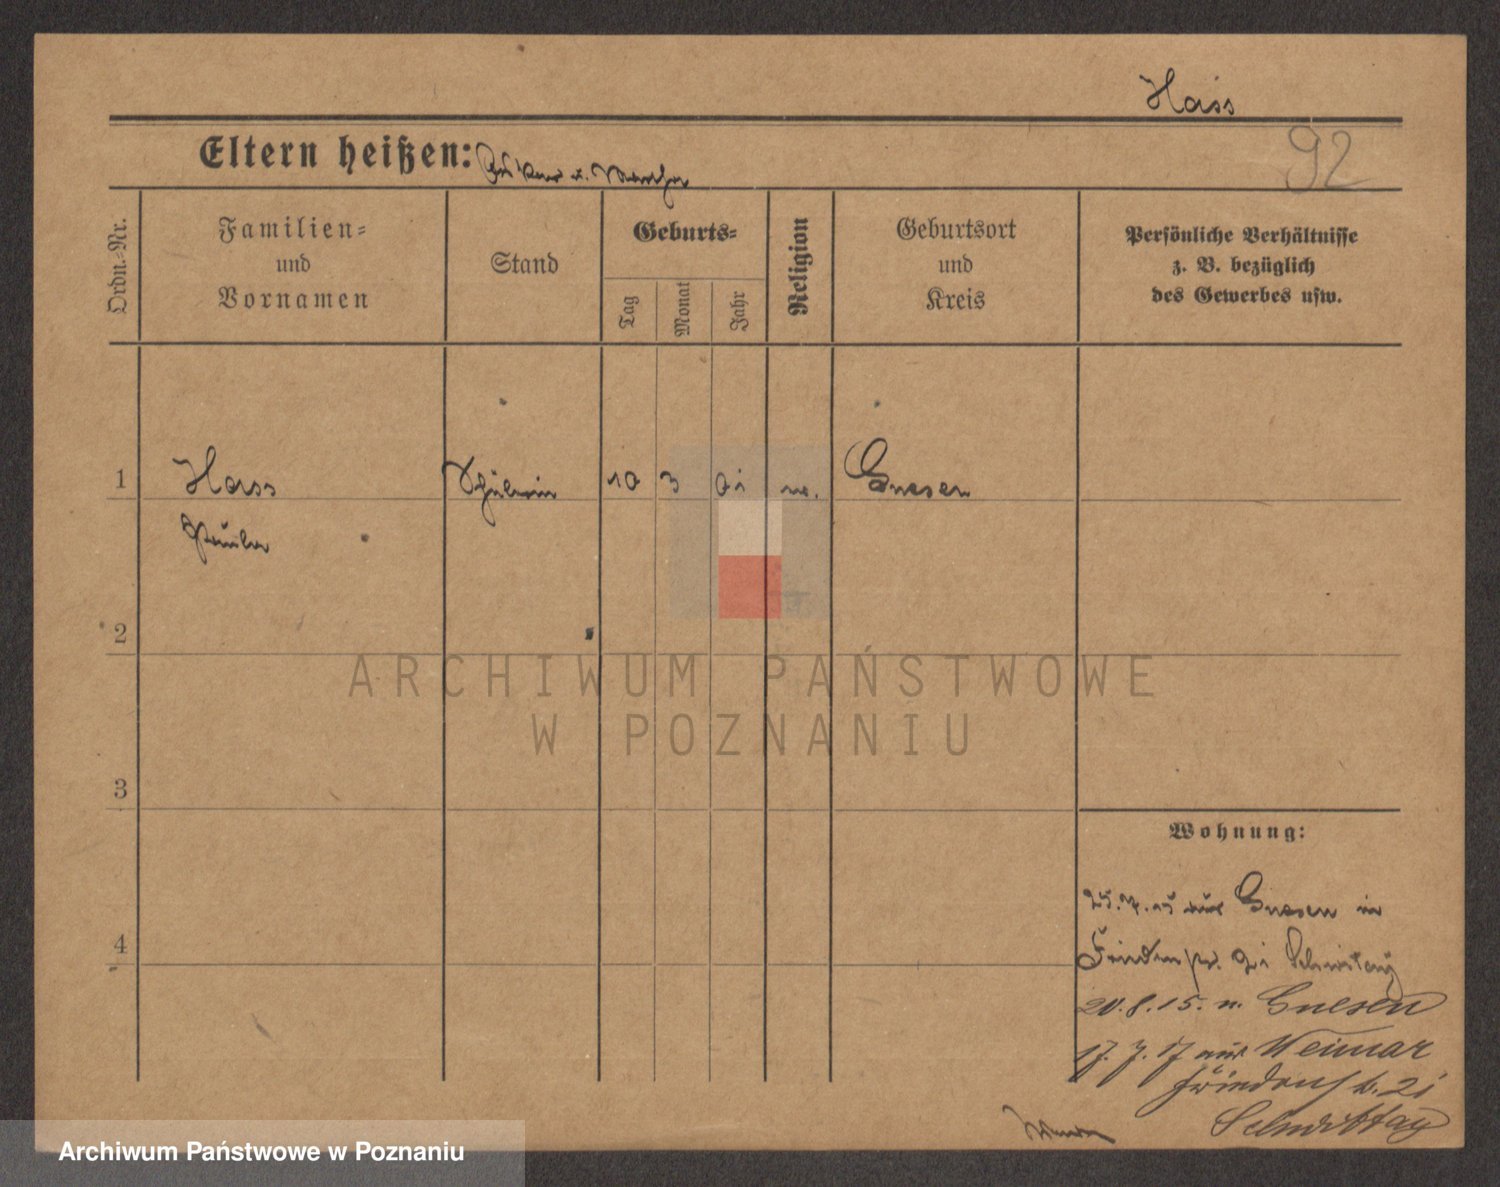 Hass
92
Eltern heißen: u. Martha
Ordn.-Nr.
Familien- und Vornamen
Stand
Geburts-
Tag
Monat
Jahr
Religion
Geburtsort und Kreis
Persönliche Verhältnisse z. B. bezüglich des Gewerbes usw.
1 Hass Schülerin 10 3 01 Gnesen
Paula
2
ARCHIWUM PAŃSTWOWE
W POZNANIU
3
Wohnung:
25.7.15 aus Gnesen in
4
20.8.15. n. Gnesen
17.7.17 aus Weimar
Archiwum Państwowe w Poznaniu